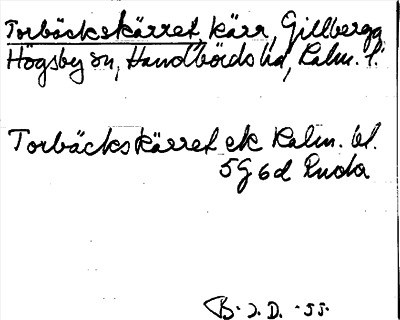 Torbäckskärret, kärr, Gillberga
Högsby sn, Handbörds hd, Kalm. l.
Torbäckskärret ek Kalm. bl.
5G 6d Ruda
B. J. D. -55.